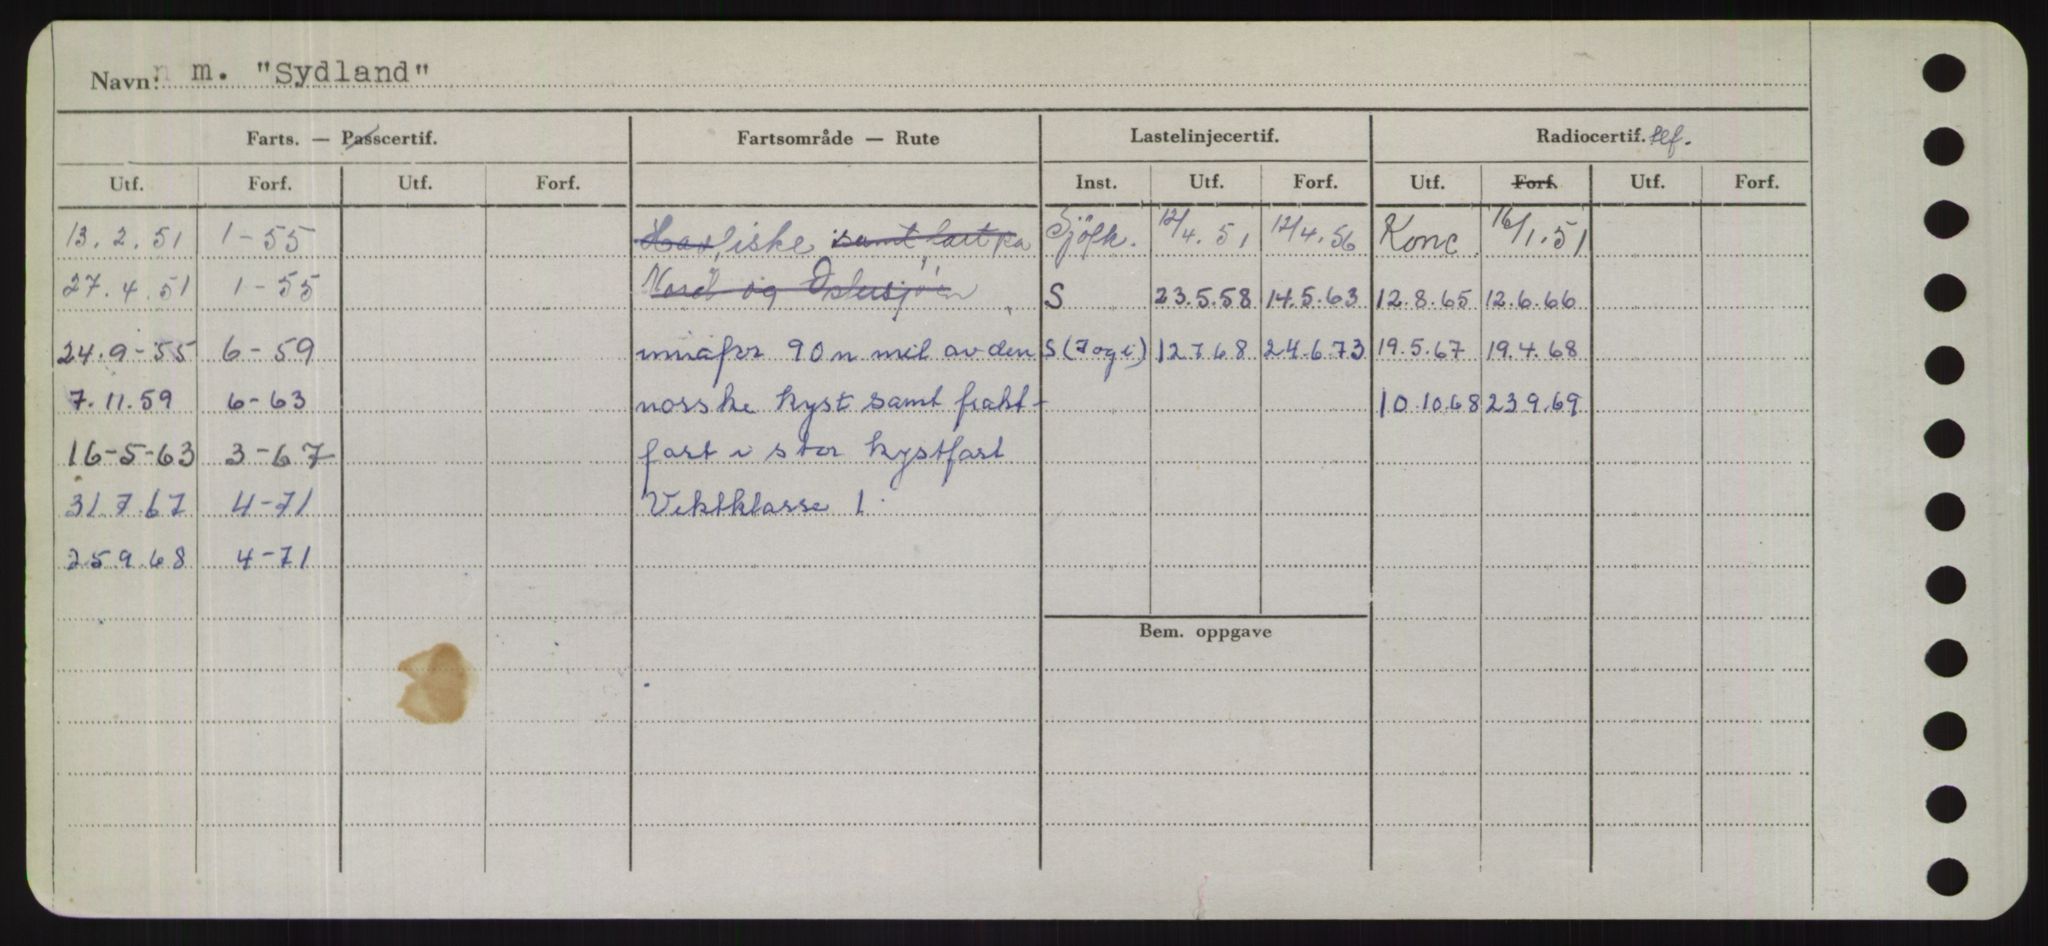 Navn: m. "Sydland"
Farts. — Passcertif. Fartsområde — Rute Lastelinjecertif. Radiocertif. tlf.
Utf. Forf. Utf. Forf. Inst. Utf. Forf. Utf. Forf. Utf. Forf.
13.2.51 1-55 fiske samt fart på Sjöfk. 12/4.51 12/4.56 Konc 16/1.51
27.4.51 1-55 Nord og Östersjöen S 23.5.58 14.5.63 12.8.65 12.6.66
24.9-55 6-59 innafor 90 n mil av den S (7 og i) 12.7.68 24.6.73 19.5.67 19.4.68
7.11.59 6-63 norske kyst samt frakt- 10.10.68 23.9.69
16-5-63 3-67 fart i stor kystfart
31.7.67 4-71 Vektklasse 1.
25.9.68 4-71
Bem. oppgave